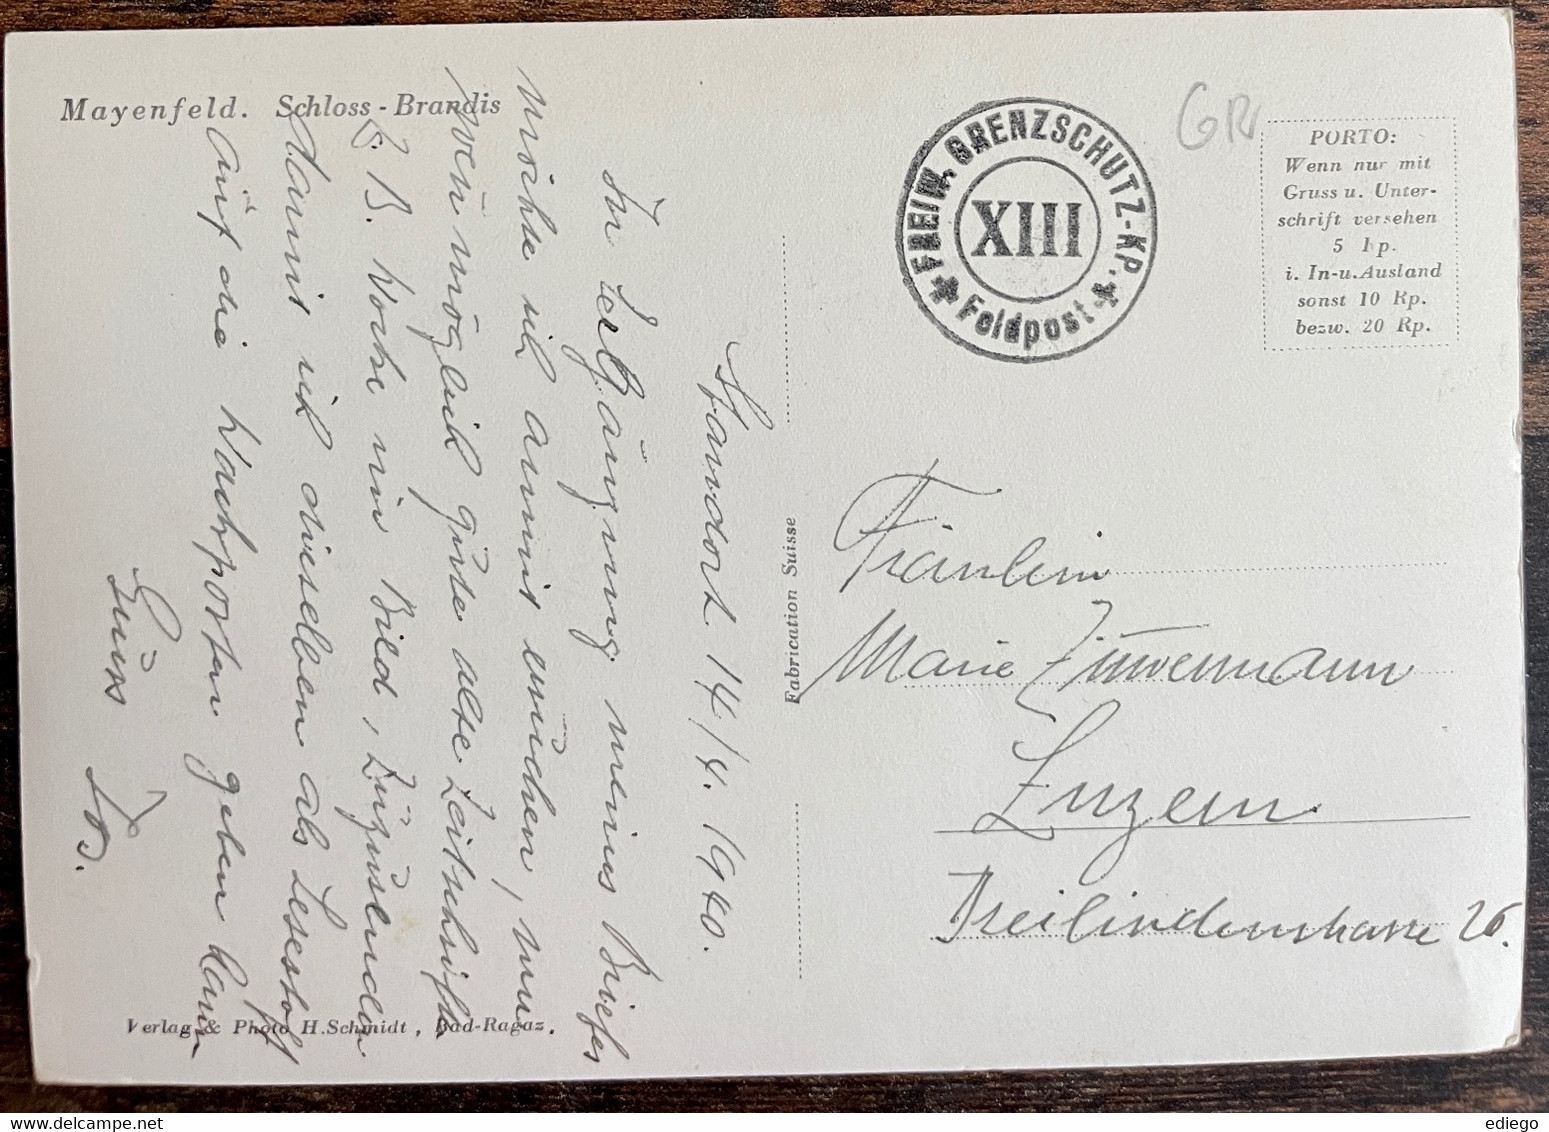 Mayenfeld. Schloss - Brandis
Standort 14/4. 1940.
In Ergänzung meines Briefes
möchte ich damit ersuchen, mir
wenn möglich gute alte Zeitschriften
z. B. Woche im Bild, zuzusenden
damit ich dieselben als Lesestoff
auf die Wachposten geben kann
Gruss
Verlag & Photo H. Schmidt, Bad-Ragaz.
Fabrication Suisse
FREIW. GRENZSCHUTZ-KP.
XIII
Feldpost
GR
PORTO:
Wenn nur mit
Gruss u. Unter-
schrift versehen
5 Rp.
i. In-u. Ausland
sonst 10 Rp.
bezw. 20 Rp.
Fräulein
Marie Zimmermann
Luzern
Dreilindenstrasse 26.
ediego
delcampe.net